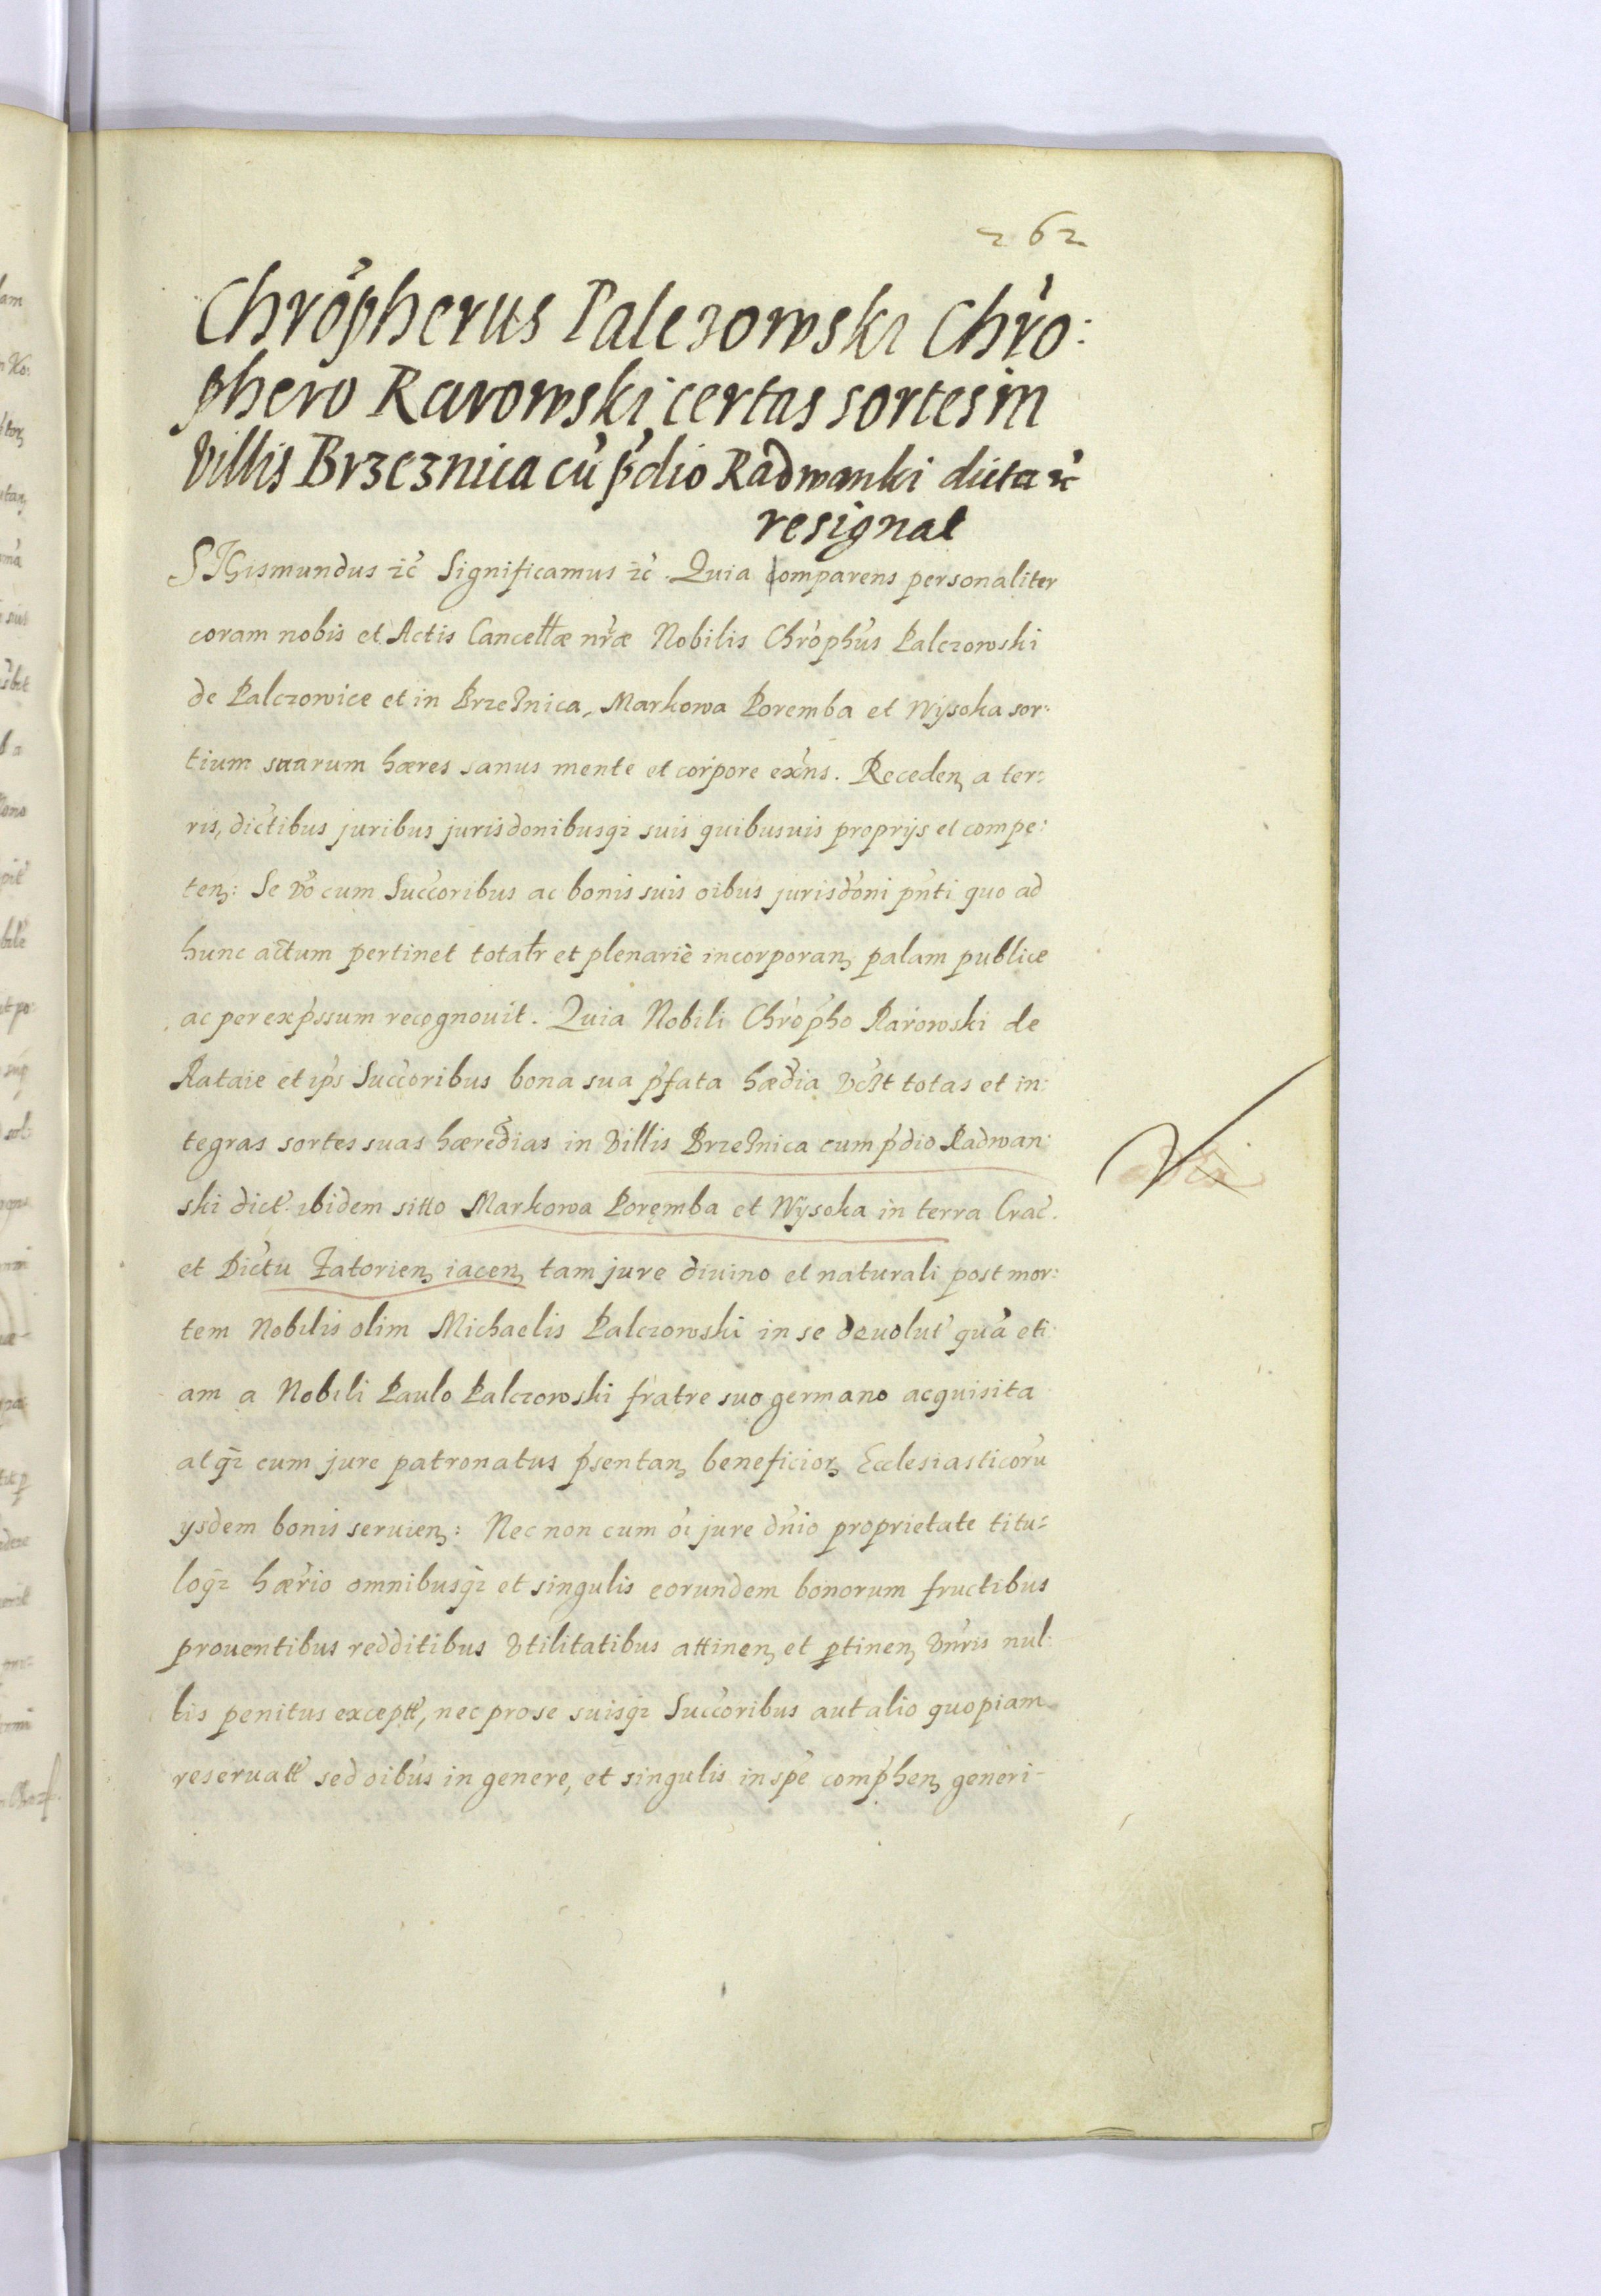 262
Chrõpherus Palczowski Chro:
phero Rarowski certas sortes in
Villis Brzeznica cũ p̃dio Radwanki dicta ꝛc̃
resignat
SIGismundus ꝛc̃ Significamus ꝛc̃. Quia comparens personaliter
coram nobis et Actis Cancellæ nr̃æ Nobilis Chrõph̃us Palczowski
de Palczowice et in Brzeźnica, Markowa Poremba et Wysoka sor:
tium suarum hæres sanus mente et corpore ex̃ns. Recedenꝫ a ter:
ris, dictibus juribus jurisdonibusqꝫ suis quibusuis proprijs et compe:
tenꝫ: Se ṽo cum Succ̃oribus ac bonis suis oibus jurisdõni pñti quo ad
hunc actum pertinet totalr et plenariè incorporanꝫ palam publice
ac per exp̃ssum recognouit. Quia Nobili Chrõp̃ho Rarowski de
Rataie et ip̃s Succ̃oribus bona sua p̃fata hæd̃ia vꝫt totas et in:
tegras sortes suas hæred̃ias in Villis Brzeźnica cum p̃dio Radwan:
ski dict̃. ibidem sitto Markowa Poręmba et Wysoka in terra Crac̃.
et Dic̃tu Zatorienꝫ iacenꝫ tam jure diuino et naturali post mor:
tem Nobilis olim Michaelis Palczowski in se deuolut̃ quã eti:
am a Nobili Paulo Palczowski fratre suo germano acquisita
atqꝫ cum jure patronatus p̃sentanꝫ beneficiorꝫ Ecclesiasticorũ
ysdem bonis seruienꝫ: Nec non cum oĩ jure dñio proprietate titu:
loqꝫ hær̃io omnibusqꝫ et singulis eorundem bonorum fructibus
prouentibus redditibus Vtilitatibus attinenꝫ et ꝑtinenꝫ Vñris nul:
lis penitus except̃, nec pro se suisqꝫ Succ̃oribus aut alio quopiam
reseruatt̃ sed oib̃us in genere, et singulis in sp̃e comp̃henꝫ generi-